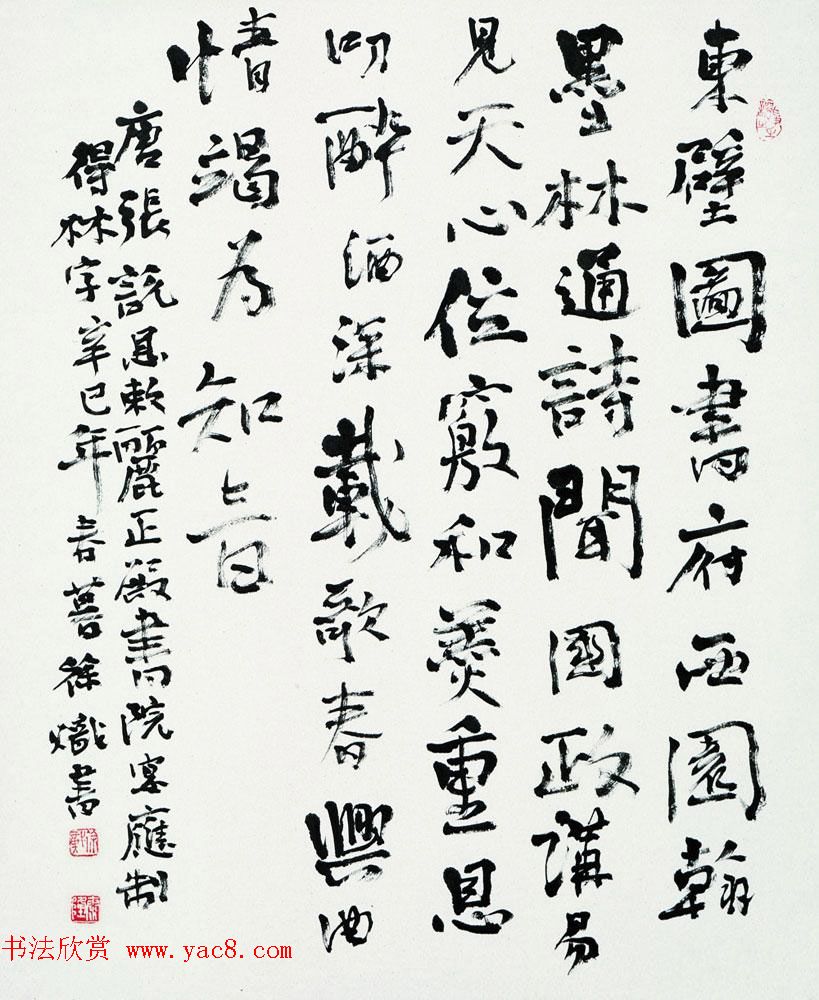 東壁圖書府西園翰
墨林通詩聞國政講易
見天心位竊和羹重恩
叨醉酒深載歌春興曲
情竭為知音
唐張説恩敕麗正殿書院宴應制
得林字辛巳年春暮徐熾書
书法欣赏 www.yac8.com